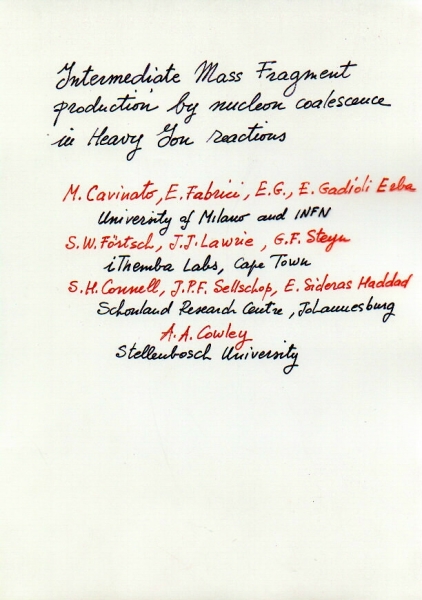 Intermediate Mass Fragment
production by nucleon coalescence
in Heavy Ion reactions
M. Cavinato, E. Fabrici, E.G., E. Gadioli Erba
University of Milano and INFN
S.W. Förtsch, J.J. Lawrie, G.F. Steyn
iThemba Labs, Cape Town
S.H. Connell, J.P.F. Sellschop, E. Sideras Haddad
Schonland Research Centre, Johannesburg
A.A. Cowley
Stellenbosch University